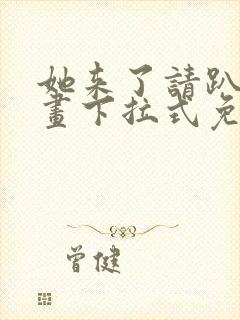 她来了請趴
畫下拉式免
曾健